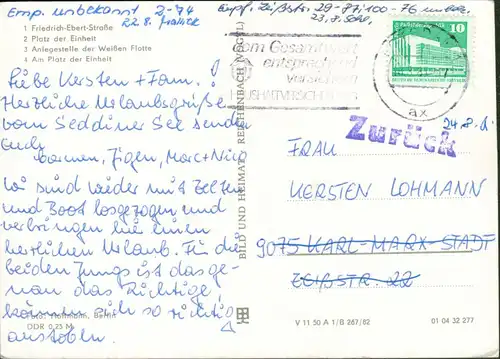 Emp. unbekannt 2-74
22.8. Jeslick
Empf. Zeißstr. 29-87, 100-76 unbek.
23.8.
1 Friedrich-Ebert-Straße
2 Platz der Einheit
3 Anlegestelle der Weißen Flotte
4 Am Platz der Einheit
Liebe Kersten + Fam.!
Herzliche Urlaubsgrüße
vom Seddiner See senden
Euch
Carmen, Jürgen, Marc + Nico
Wir sind wieder mit Zelten
und Boot losgezogen und
verbringen hier einen
herrlichen Urlaub. Für die
beiden Jungs ist das ge-
nau das Richtige,
können sich so richtig
austoben.
Foto: Hoffmann, Berlin
DDR 0,25 M
BILD UND HEIMAT REICHENBACH (VOGTL)
dem Gesamtwert
entsprechend
versichern
HAUSHALTVERSICHERUNG
10
ax
24.8.
Zurück
FRAU
KERSTEN LOHMANN
9075 KARL-MARX-STADT
ZEIßSTR. 22
V 11 50 A 1/B 267/82
01 04 32 277